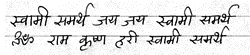 स्वामी समर्थ जय जय स्वामी समर्थ
ॐ राम कृष्ण हरी स्वामी समर्थ